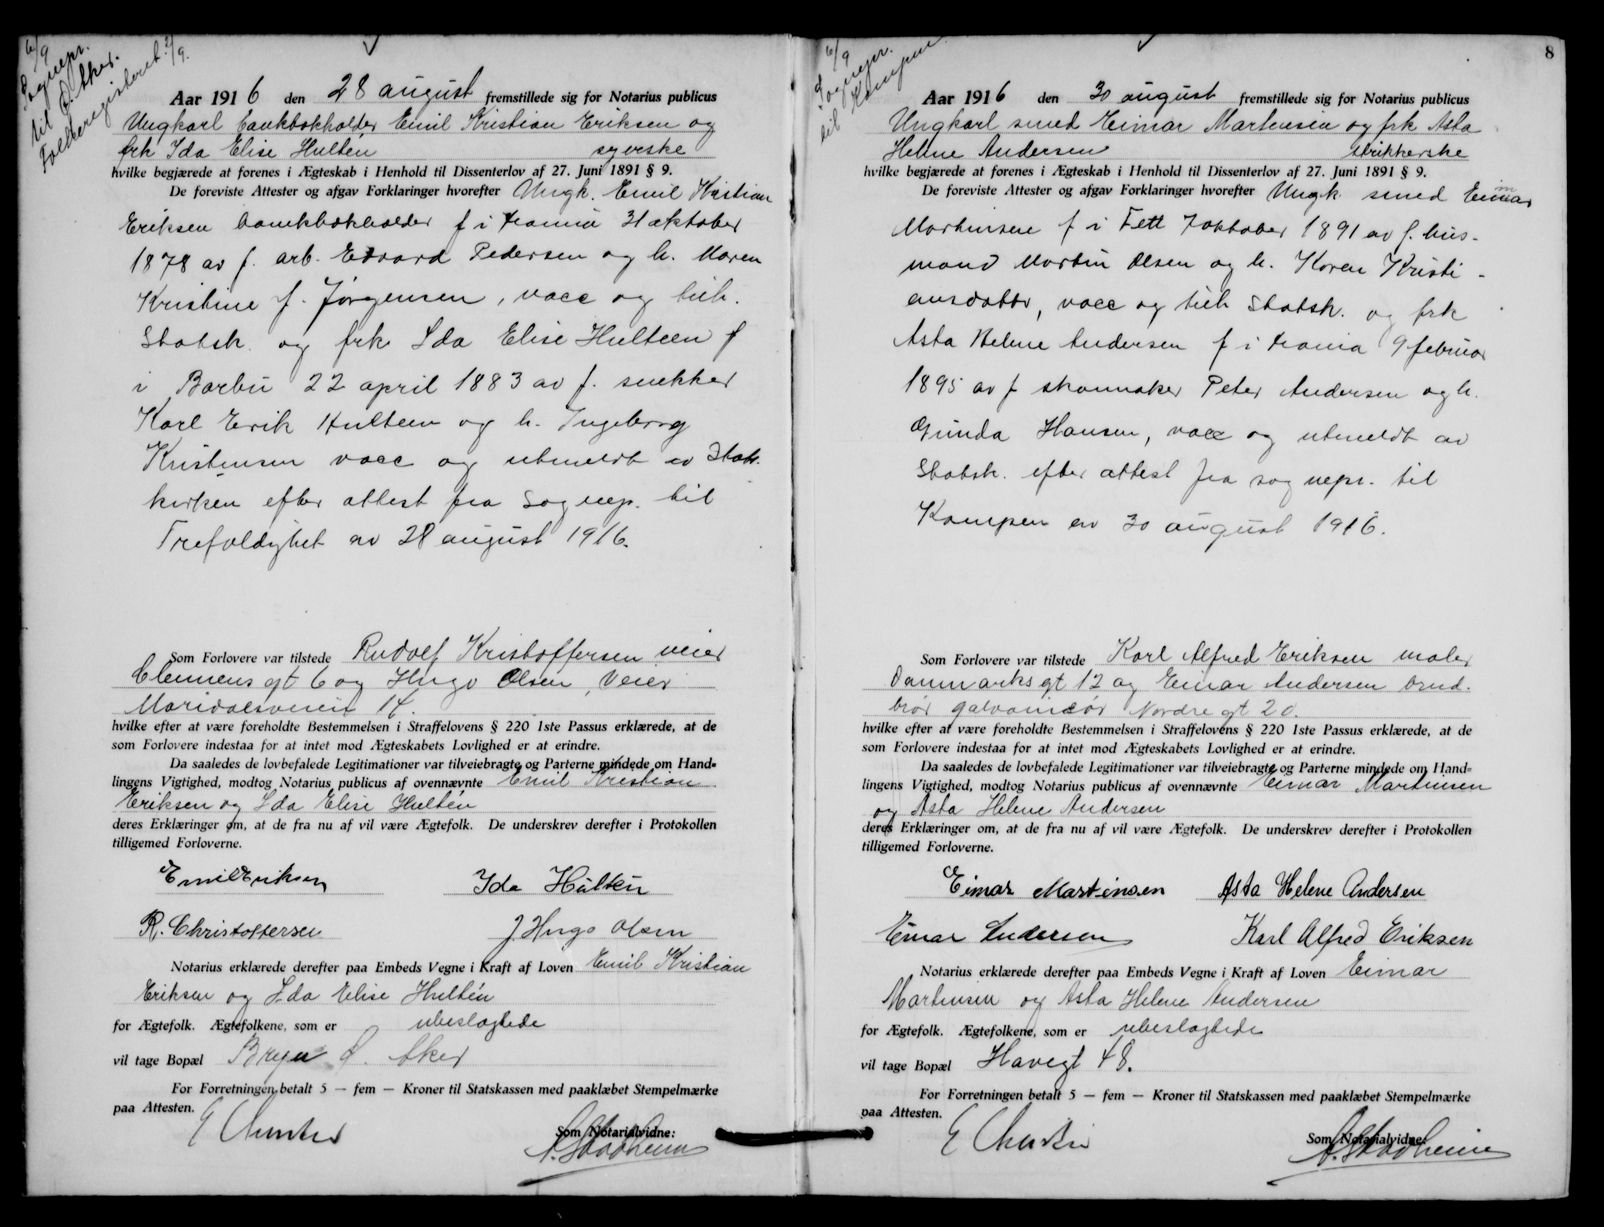 6/9
Sognepr.
til Ø. Aker.
Folkeregisteret 2/9.
Aar 1916 den 28 august fremstillede sig for Notarius publicus
Ungkarl bankbokholder Emil Kristian Eriksen og
frk Ida Elise Hultén syerske
hvilke begjærede at forenes i Ægteskab i Henhold til Dissenterlov af 27. Juni 1891 § 9.
De foreviste Attester og afgav Forklaringer hvorefter Ungk. Emil Kristian
Eriksen bankbokholder f i Krania 31 oktober
1878 av f. arb. Edvard Pedersen og h. Maren
Kristine f. Jørgensen, vacc og tilh.
Statsk. og frk Ida Elise Hulteen f
i Barbu 22 april 1883 av f. snekker
Karl Erik Hulteen og h. Ingeborg
Kristensen vacc og utmeldt av Stats-
kirken efter attest fra Sognep. til
Trefoldighet av 28 august 1916.
Som Forlovere var tilstede Rudolf Kristoffersen veier
Clemens gt 6 og Hugo Olsen, Veier
Maridalsveien 14.
hvilke efter at være foreholdte Bestemmelsen i Straffelovens § 220 1ste Passus erklærede, at de
som Forlovere indestaa for at intet mod Ægteskabets Lovlighed er at erindre.
Da saaledes de lovbefalede Legitimationer var tilveiebragte og Parterne mindede om Hand=
lingens Vigtighed, modtog Notarius publicus af ovennævnte Emil Kristian
Eriksen og Ida Elise Hultén
deres Erklæringer om, at de fra nu af vil være Ægtefolk. De underskrev derefter i Protokollen
tilligemed Forloverne.
Emil Eriksen Ida Hultén
R. Christoffersen J Hugo Olsen
Notarius erklærede derefter paa Embeds Vegne i Kraft af Loven Emil Kristian
Eriksen og Ida Elise Hultén
for Ægtefolk. Ægtefolkene, som er ubeslægtede
vil tage Bopæl Bryn Ø. Aker
For Forretningen betalt 5 — fem — Kroner til Statskassen med paaklæbet Stempelmærke
paa Attesten.
Som Notarialvidne:
8
6/9
Sognepr.
til Kampen
Aar 1916 den 30 august fremstillede sig for Notarius publicus
Ungkarl smed Eimar Martensen og frk Asta
Helene Andersen strikkerske
hvilke begjærede at forenes i Ægteskab i Henhold til Dissenterlov af 27. Juni 1891 § 9.
De foreviste Attester og afgav Forklaringer hvorefter Ungk. smed Eimar
Martinsen f i Fett 7 oktober 1891 av f. hus-
mand Martin Olsen og h. Karen Kristi-
ansdatter, vacc og tilh Statsk. og frk
Asta Helene Andersen f i Krania 9 februar
1895 av f skomaker Peter Andersen og h.
Gunda Hansen, vacc og utmeldt av
Statsk. efter attest fra sognepr. til
Kampen av 30 august 1916.
Som Forlovere var tilstede Karl Alfred Eriksen maler
Danmarks gt 12 og Einar Andersen brud.
bror galvanisør Nordre gt 20.
hvilke efter at være foreholdte Bestemmelsen i Straffelovens § 220 1ste Passus erklærede, at de
som Forlovere indestaa for at intet mod Ægteskabets Lovlighed er at erindre.
Da saaledes de lovbefalede Legitimationer var tilveiebragte og Parterne mindede om Hand=
lingens Vigtighed, modtog Notarius publicus af ovennævnte Eimar Martinsen
og Asta Helene Andersen
deres Erklæringer om, at de fra nu af vil være Ægtefolk. De underskrev derefter i Protokollen
tilligemed Forloverne.
Eimar Martinsen Asta Helene Andersen
Einar Andersen Karl Alfred Eriksen
Notarius erklærede derefter paa Embeds Vegne i Kraft af Loven Eimar
Martensen og Asta Helene Andersen
for Ægtefolk. Ægtefolkene, som er ubeslægtede
vil tage Bopæl Havegt 48.
For Forretningen betalt 5 — fem — Kroner til Statskassen med paaklæbet Stempelmærke
paa Attesten.
Som Notarialvidne: